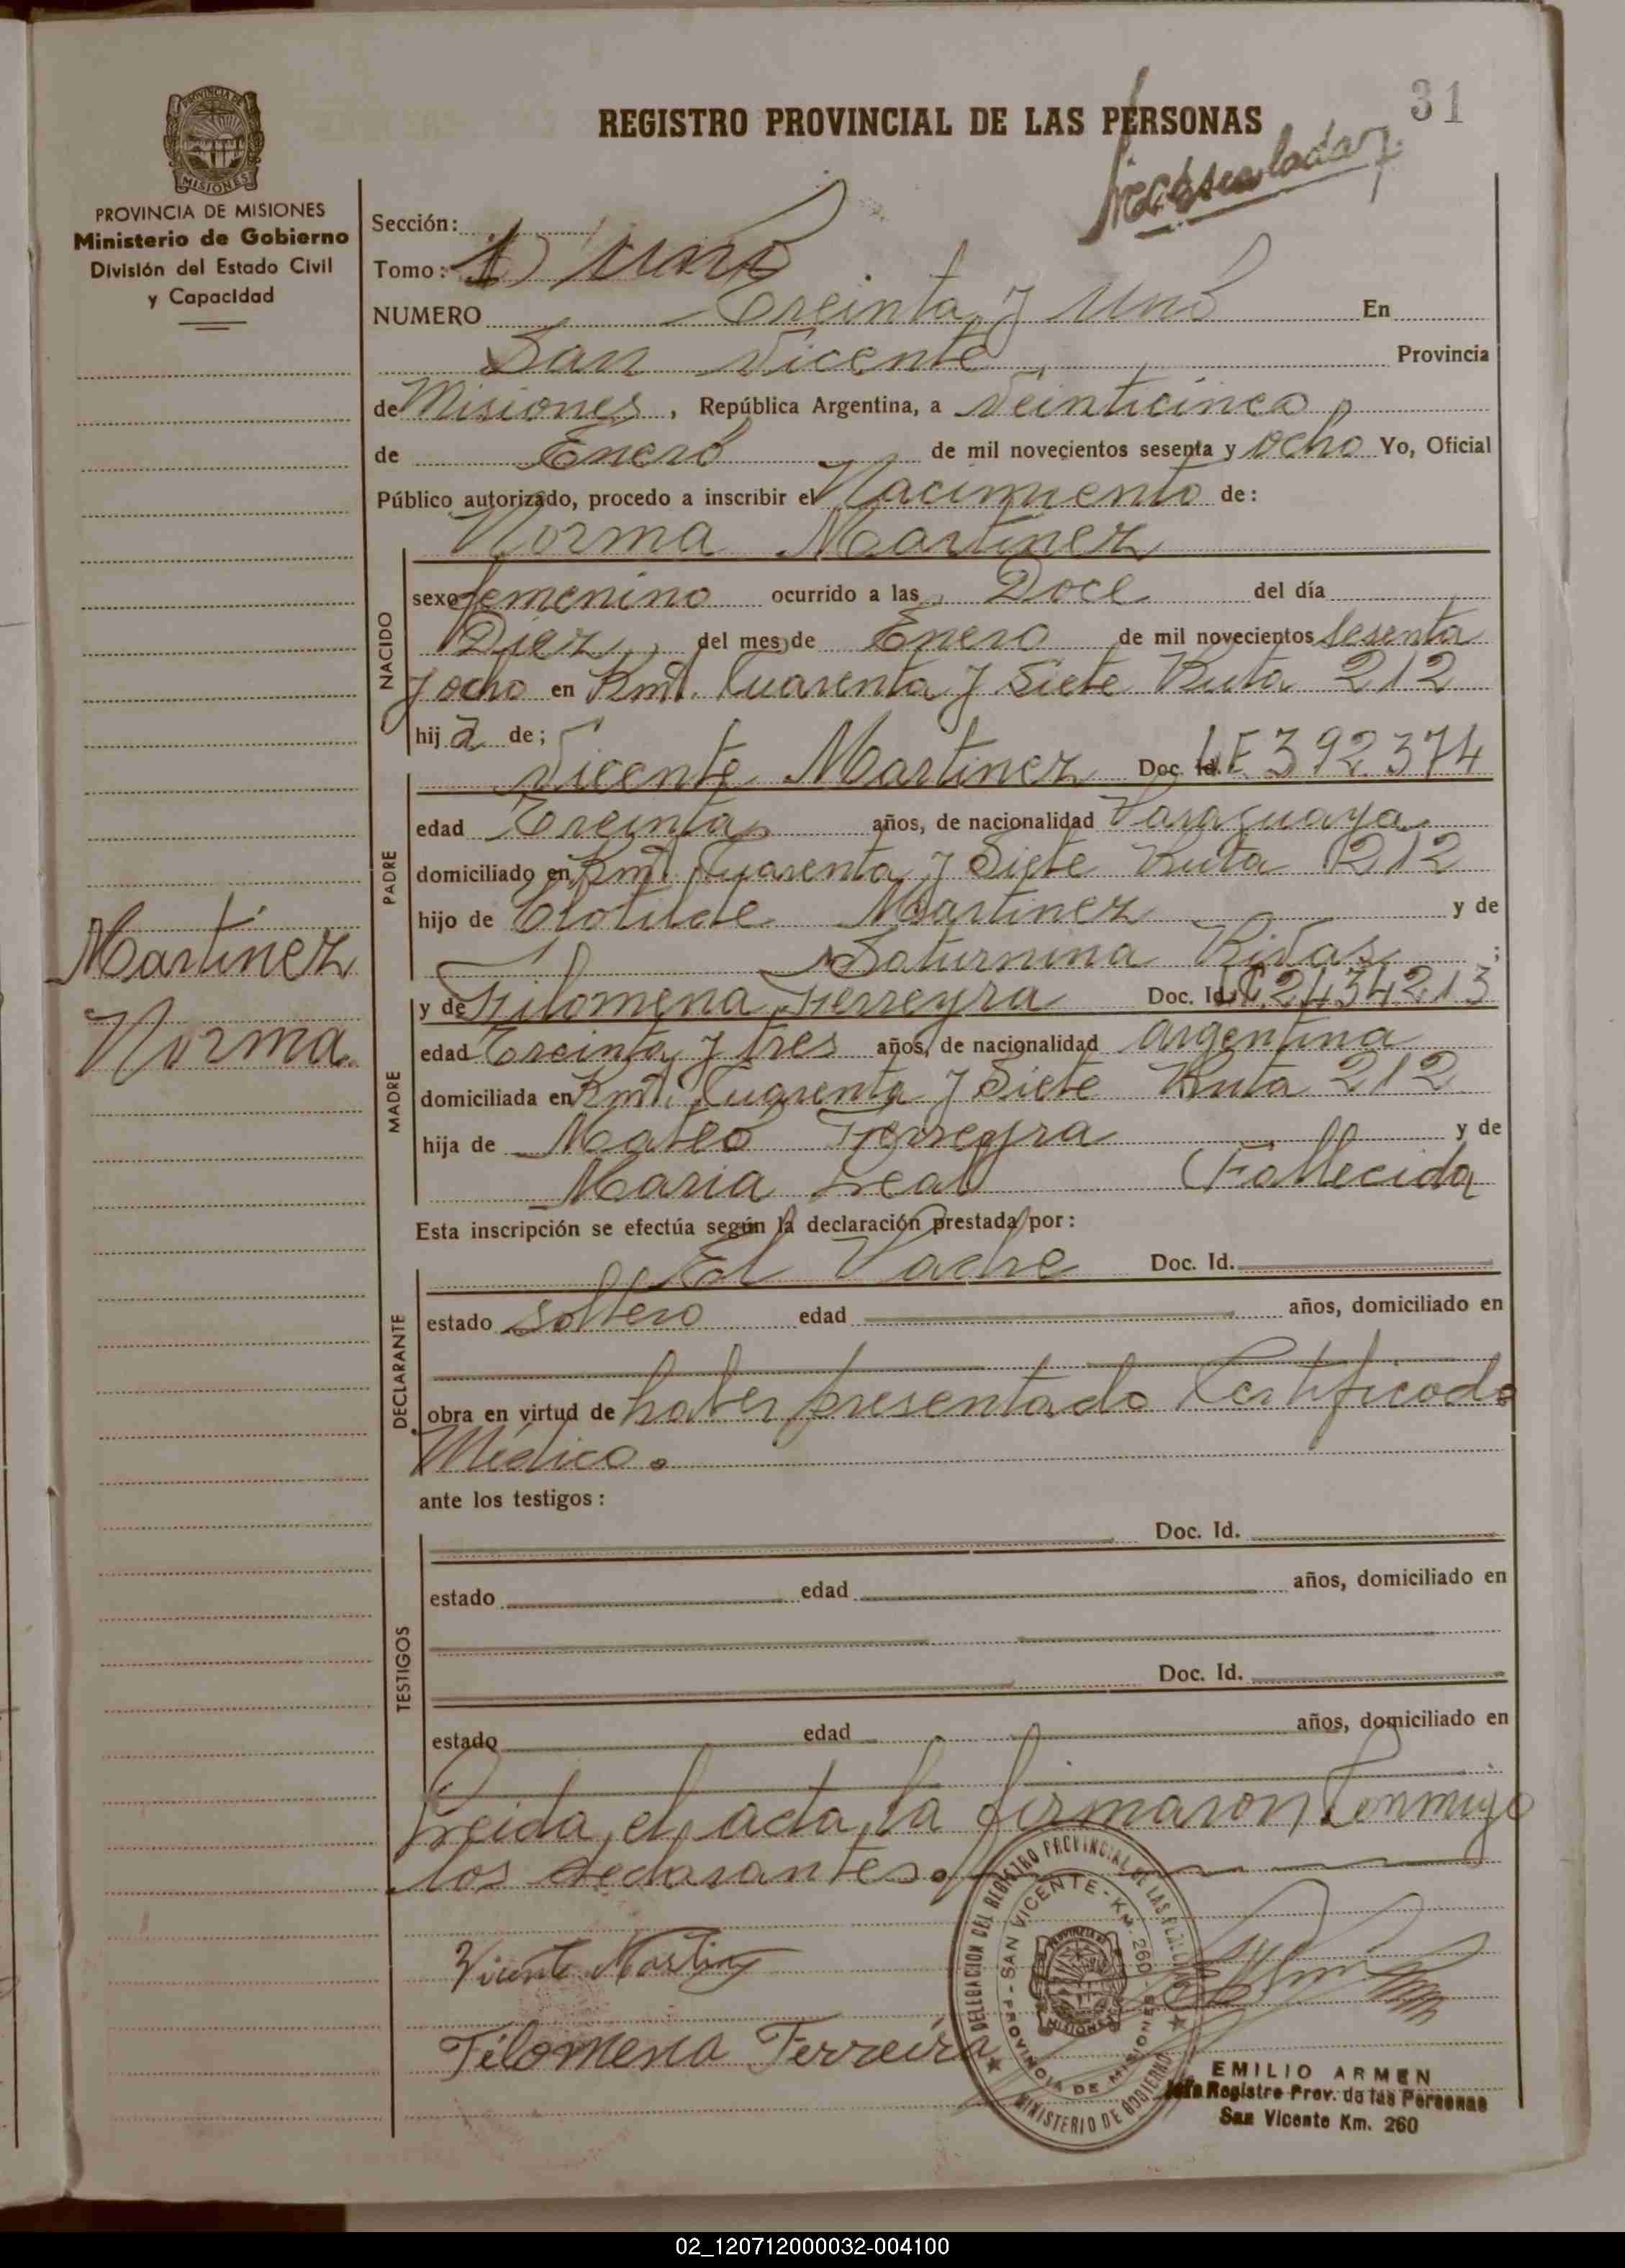 31
REGISTRO PROVINCIAL DE LAS PERSONAS
PROVINCIA DE
MISIONES
PROVINCIA DE MISIONES
Ministerio de Gobierno
División del Estado Civil
y Capacidad
Sección:
Tomo: 1) uno
NUMERO Treinta y Uno En
San Vicente Provincia
de Misiones, República Argentina, a Veinticinco
de Enero de mil novecientos sesenta y ocho Yo, Oficial
Público autorizado, procedo a inscribir el Nacimiento de:
Norma Martinez
NACIDO
sexo femenino ocurrido a las Doce del día
Diez del mes de Enero de mil novecientos sesenta
y ocho en Kmt. Cuarenta y Siete Ruta 212
hija de;
Vicente Martinez Doc. Id. LE 392.374
PADRE
edad Treinta años, de nacionalidad Paraguaya
domiciliado en Kmt. Cuarenta y Siete Ruta 212
hijo de Clotilde Martinez y de
Saturnina Rivas ;
Martinez
Norma
y de Filomena Ferreyra Doc. Id. LC 2434213
MADRE
edad Treinta y tres años, de nacionalidad argentina
domiciliada en Kmt. Cuarenta y Siete Ruta 212
hija de Mateo Ferreyra y de
Maria Leal (Fallecida
Esta inscripción se efectúa según la declaración prestada por:
El Padre Doc. Id.
DECLARANTE
estado soltero edad años, domiciliado en
obra en virtud de haber presentado Certificado
Médico.
ante los testigos:
TESTIGOS
Doc. Id.
estado edad años, domiciliado en
Doc. Id.
estado edad años, domiciliado en
Leida el acta, la firmaron Conmigo
los declarantes.
Vicente Martinez
Filomena Ferreira
DELEGACION DEL REGISTRO PROVINCIAL DE LAS PERSONAS
SAN VICENTE - KM. 260 - PROVINCIA DE MISIONES
MISIONES
MINISTERIO DE GOBIERNO
EMILIO ARMEN
Jefe Registro Prov. de las Personas
San Vicente Km. 260
02_120712000032-004100